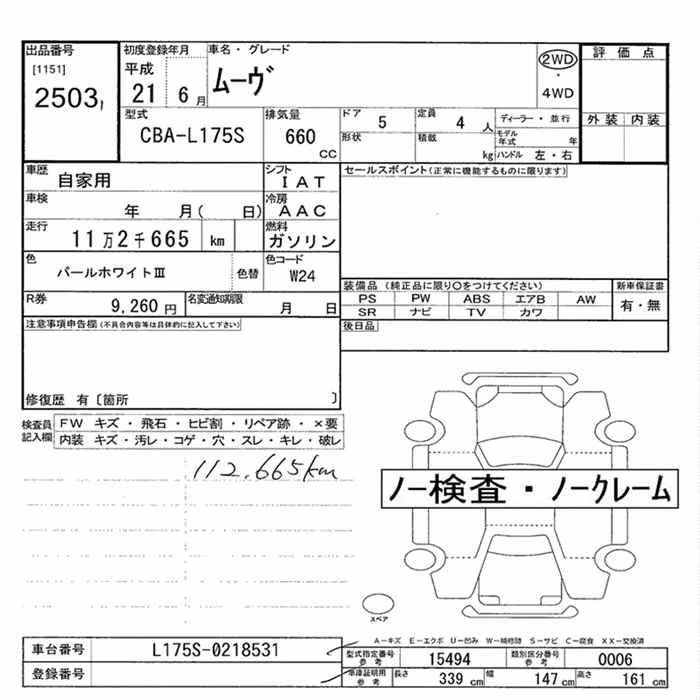 出品番号
[1151]
2503
初度登録年月
平成
21 6月
車名・グレード
ムーヴ
2WD
・
4WD
評価点
外装 内装
型式
CBA-L175S
排気量
660
CC
ドア 5
定員 4 人
形状
積載 kg
ディーラー・並行
モデル年式 年
ハンドル 左・右
車歴
自家用
シフト
IAT
車検
年 月( 日)
冷房
AAC
走行
11万2千665 km
燃料
ガソリン
色
パールホワイトⅢ
色替
色コード
W24
R券
9,260円
名変通知期限
月 日
セールスポイント(正常に機能するものに限ります)
装備品 (純正品に限り○をつけてください)
PS PW ABS エアB AW
SR ナビ TV カワ
新車保証書
有・無
後日品
注意事項申告欄(不具合内容等は具体的に記入して下さい)
修復歴 有〔箇所 〕
検査員
記入欄
FW キズ・飛石・ヒビ割・リペア跡・×要
内装 キズ・汚レ・コゲ・穴・スレ・キレ・破レ
112.665km
ノー検査・ノークレーム
スペア
A―キズ E―エクボ U―凹み W―補修跡 S―サビ C―腐食 XX―交換済
車台番号 L175S-0218531
登録番号
型式指定番号
参考
15494
類別区分番号
参考
0006
車庫証明用
参考
長さ 339 cm
幅 147 cm
高さ 161 cm